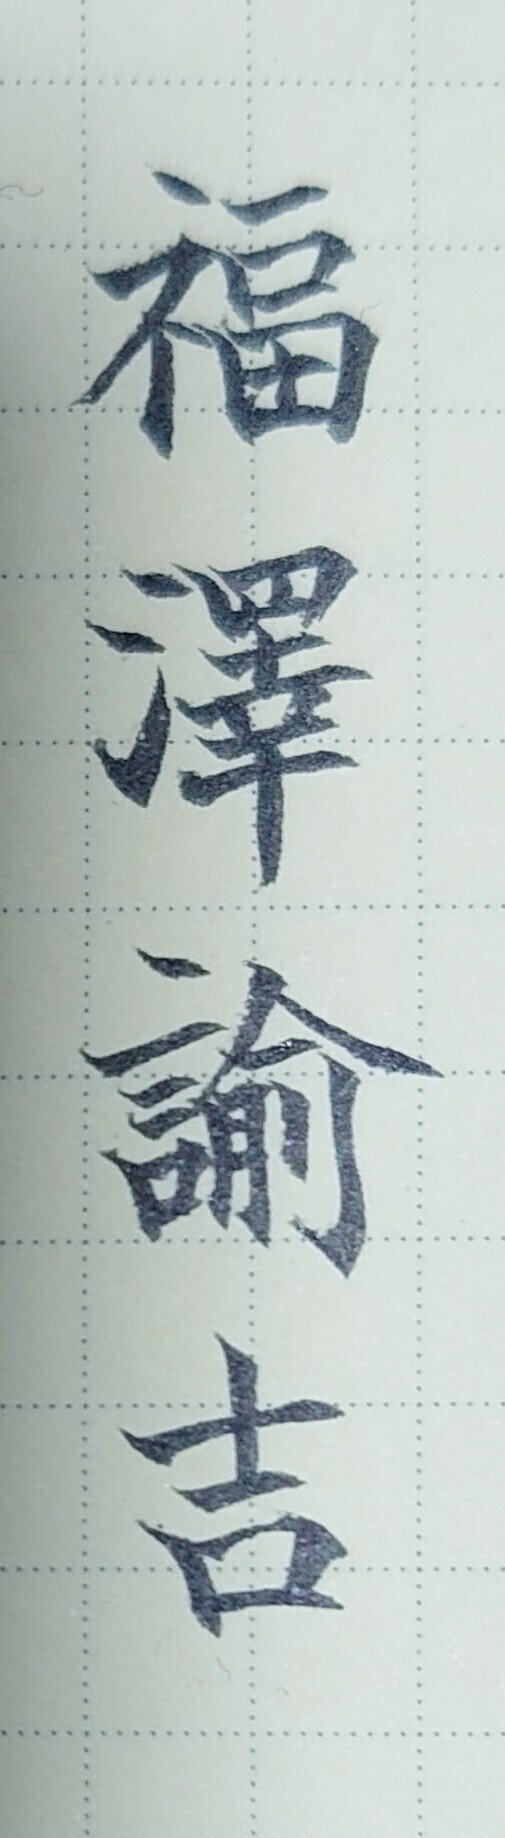 福澤諭吉